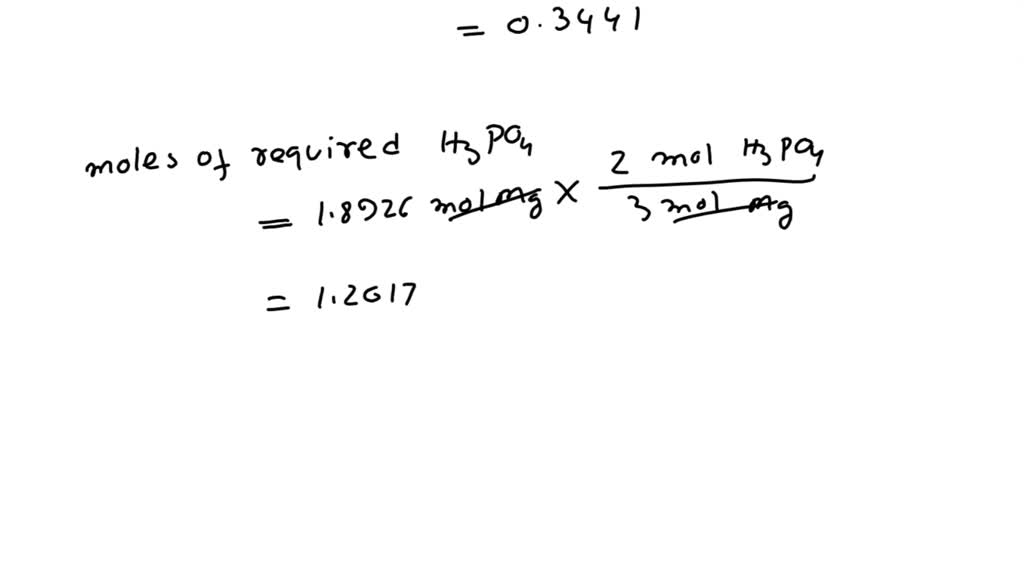 = 0.3441
moles of required H3PO4
= 1.8926 mol Mg × 2 mol H3PO4 / 3 mol Mg
= 1.2617